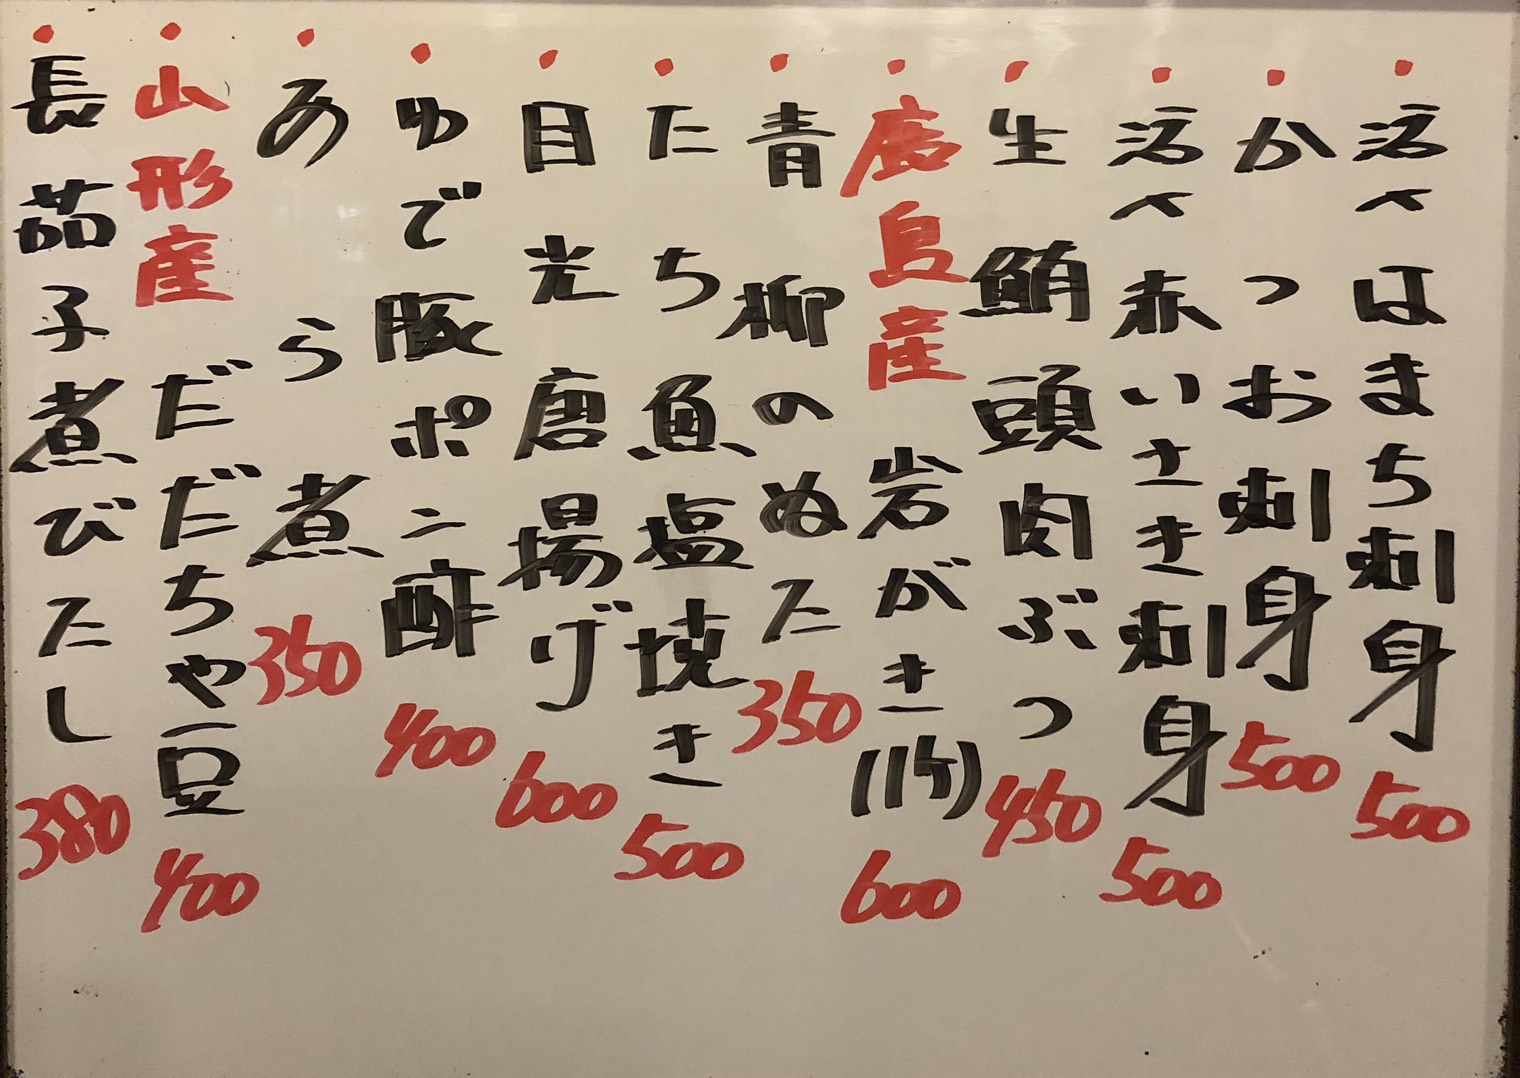 活〆はまち刺身 500
かつお刺身 500
活〆赤いさき刺身 500
生鮪頭肉ぶつ 450
広島産 岩がき(1ケ) 600
青柳のぬた 350
たち魚塩焼き 500
目光唐揚げ 600
ゆで豚ポン酢 400
あら煮 350
山形産 だだちゃ豆 400
長茄子煮びたし 380